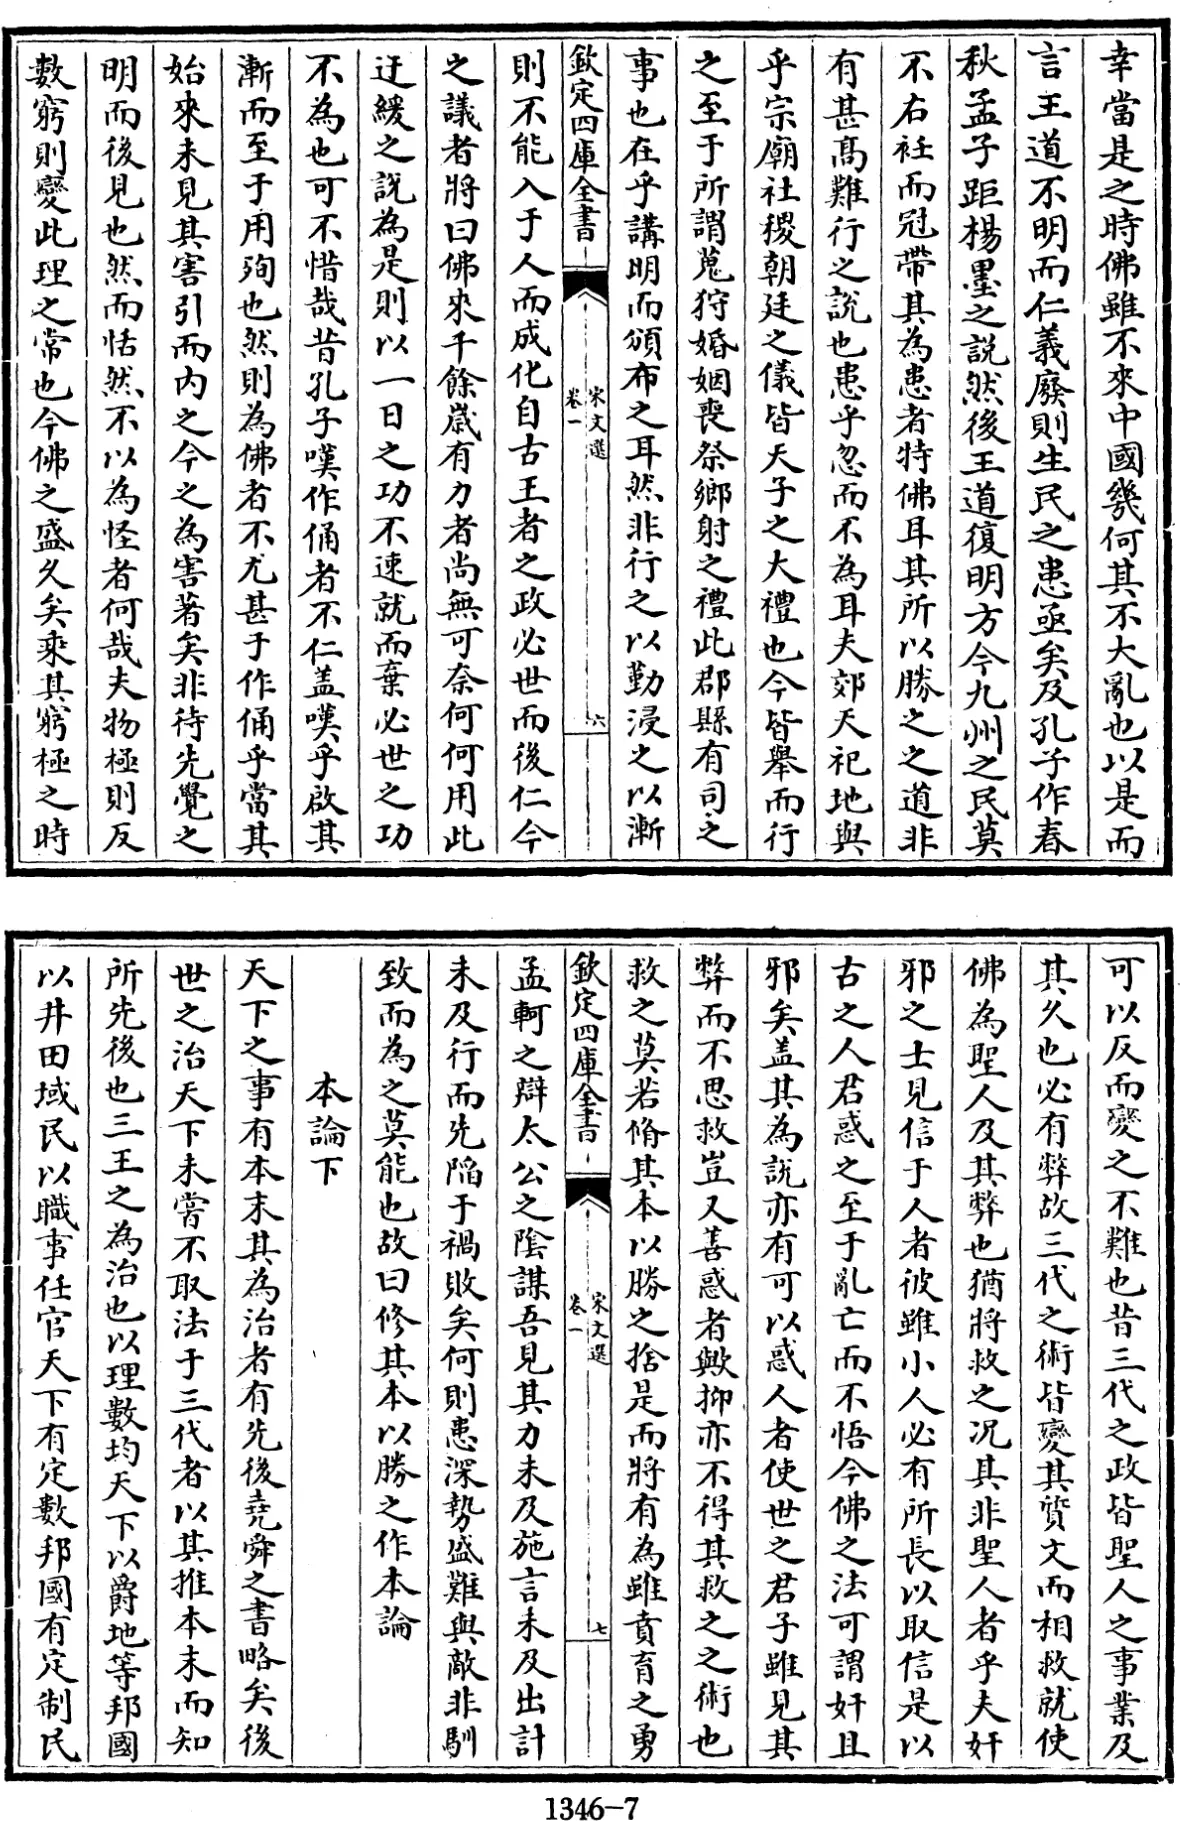 幸當是之時佛雖不來中國幾何其不大亂也以是而
言王道不明而仁義廢則生民之患亟矣及孔子作春
秋孟子距楊墨之說然後王道復明方今九州之民莫
不右衽而冠帶其為患者特佛耳其所以勝之之道非
有甚髙難行之說也患乎忽而不為耳夫郊天祀地與
乎宗廟社稷朝廷之儀皆天子之大禮也今皆舉而行
之至于所謂蒐狩婚姻喪祭鄉射之禮此郡縣有司之
事也在乎講明而頒布之耳然非行之以勤浸之以漸
欽定四庫全書
宋文選
卷一
六
則不能入于人而成化自古王者之政必世而後仁今
之議者將曰佛來千餘嵗有力者尚無可奈何何用此
迂緩之說為是則以一日之功不速就而棄必世之功
不為也可不惜哉昔孔子嘆作俑者不仁盖嘆乎啟其
漸而至于用殉也然則為佛者不尤甚于作俑乎當其
始來未見其害引而内之今之為害著矣非待先覺之
明而後見也然而恬然不以為怪者何哉夫物極則反
數窮則變此理之常也今佛之盛久矣乘其窮極之時
可以反而變之不難也昔三代之政皆聖人之事業及
其久也必有弊故三代之術皆變其質文而相救就使
佛為聖人及其弊也猶將救之况其非聖人者乎夫奸
邪之士見信于人者彼雖小人必有所長以取信是以
古之人君惑之至于亂亡而不悟今佛之法可謂奸且
邪矣盖其為說亦有可以惑人者使世之君子雖見其
弊而不思救豈又善惑者歟抑亦不得其救之之術也
救之莫若脩其本以勝之捨是而將有為雖賁育之勇
欽定四庫全書
宋文選
卷一
七
孟軻之辯太公之陰謀吾見其力未及施言未及出計
未及行而先陷于禍敗矣何則患深勢盛難與敵非馴
致而為之莫能也故曰修其本以勝之作本論
本論下
天下之事有本末其為治者有先後堯舜之書略矣後
世之治天下未嘗不取法于三代者以其推本末而知
所先後也三王之為治也以理數均天下以爵地等邦國
以井田域民以職事任官天下有定數邦國有定制民
1346-7